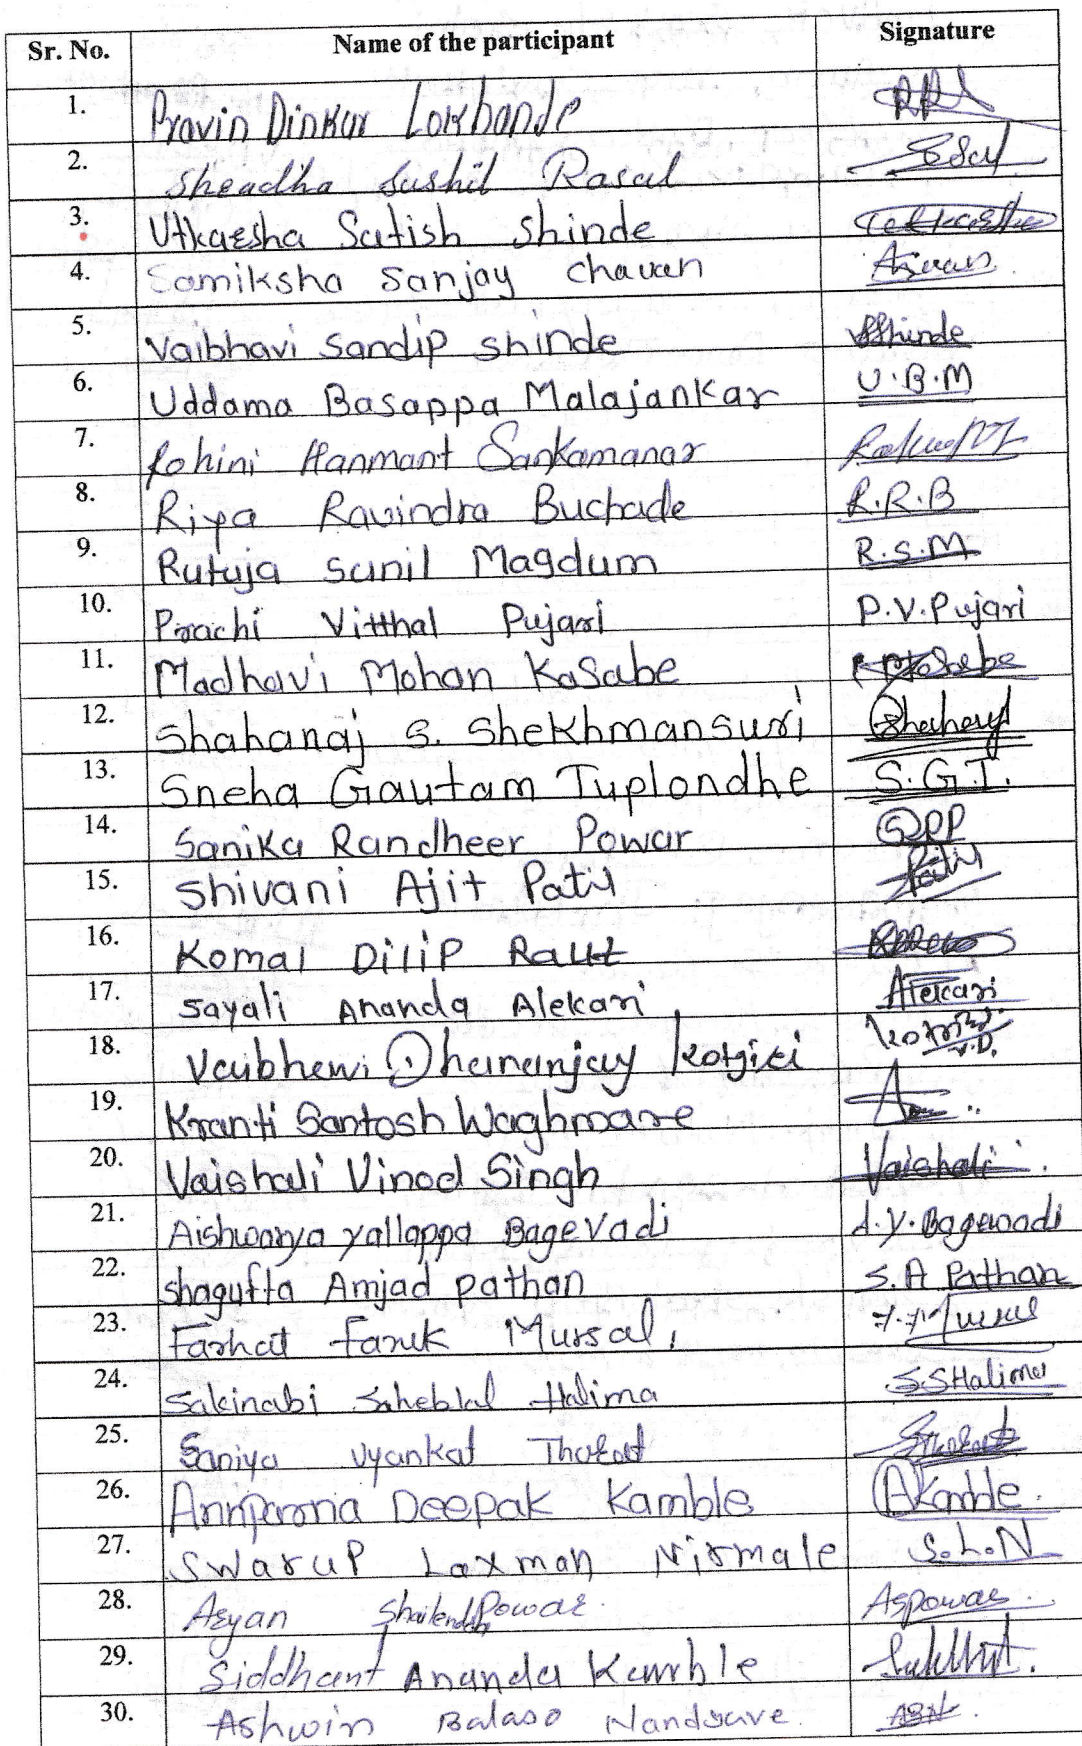 Sr. No. Name of the participant Signature
1. Pravin Dinkar Lokhande
2. Shradha Sushil Rasal
3. Utkarsha Satish Shinde
4. Samiksha Sanjay Chavan
5. Vaibhavi Sandip Shinde VShinde
6. Uddama Basappa Malajankar U.B.M
7. Rohini Hanmant Sankamanar
8. Riya Ravindra Buchade R.R.B
9. Rutuja Sunil Magdum R.S.M
10. Prachi Vitthal Pujari P.V.Pujari
11. Madhavi Mohan Kasabe
12. Shahanaj S. Shekhmansuri
13. Sneha Gautam Tuplondhe S.G.T.
14. Sanika Randheer Powar SRP
15. Shivani Ajit Patil Patil
16. Komal Dilip Raut
17. Sayali Ananda Alekari Alekari
18. Vaibhavi Dhananjay V.D.
19. Kranti Santosh Waghmare
20. Vaishali Vinod Singh Vaishali
21. Aishwarya Yallappa Bagevadi A.Y.Bagewadi
22. Shagufta Amjad Pathan S.A Pathan
23. Farhat Faruk Mursal. F.F Mursal
24. Sakinabi Saheblal Halima S.S Halima
25. Saniya Vyankat Thorat
26. Annpurna Deepak Kamble AKamble.
27. Swarup Laxman Nirmale S.L.N
28. Aryan Shailendra Powar. ASPowar.
29. Siddhant Ananda Kamble
30. Ashwin Balaso Nandrave. ABN.